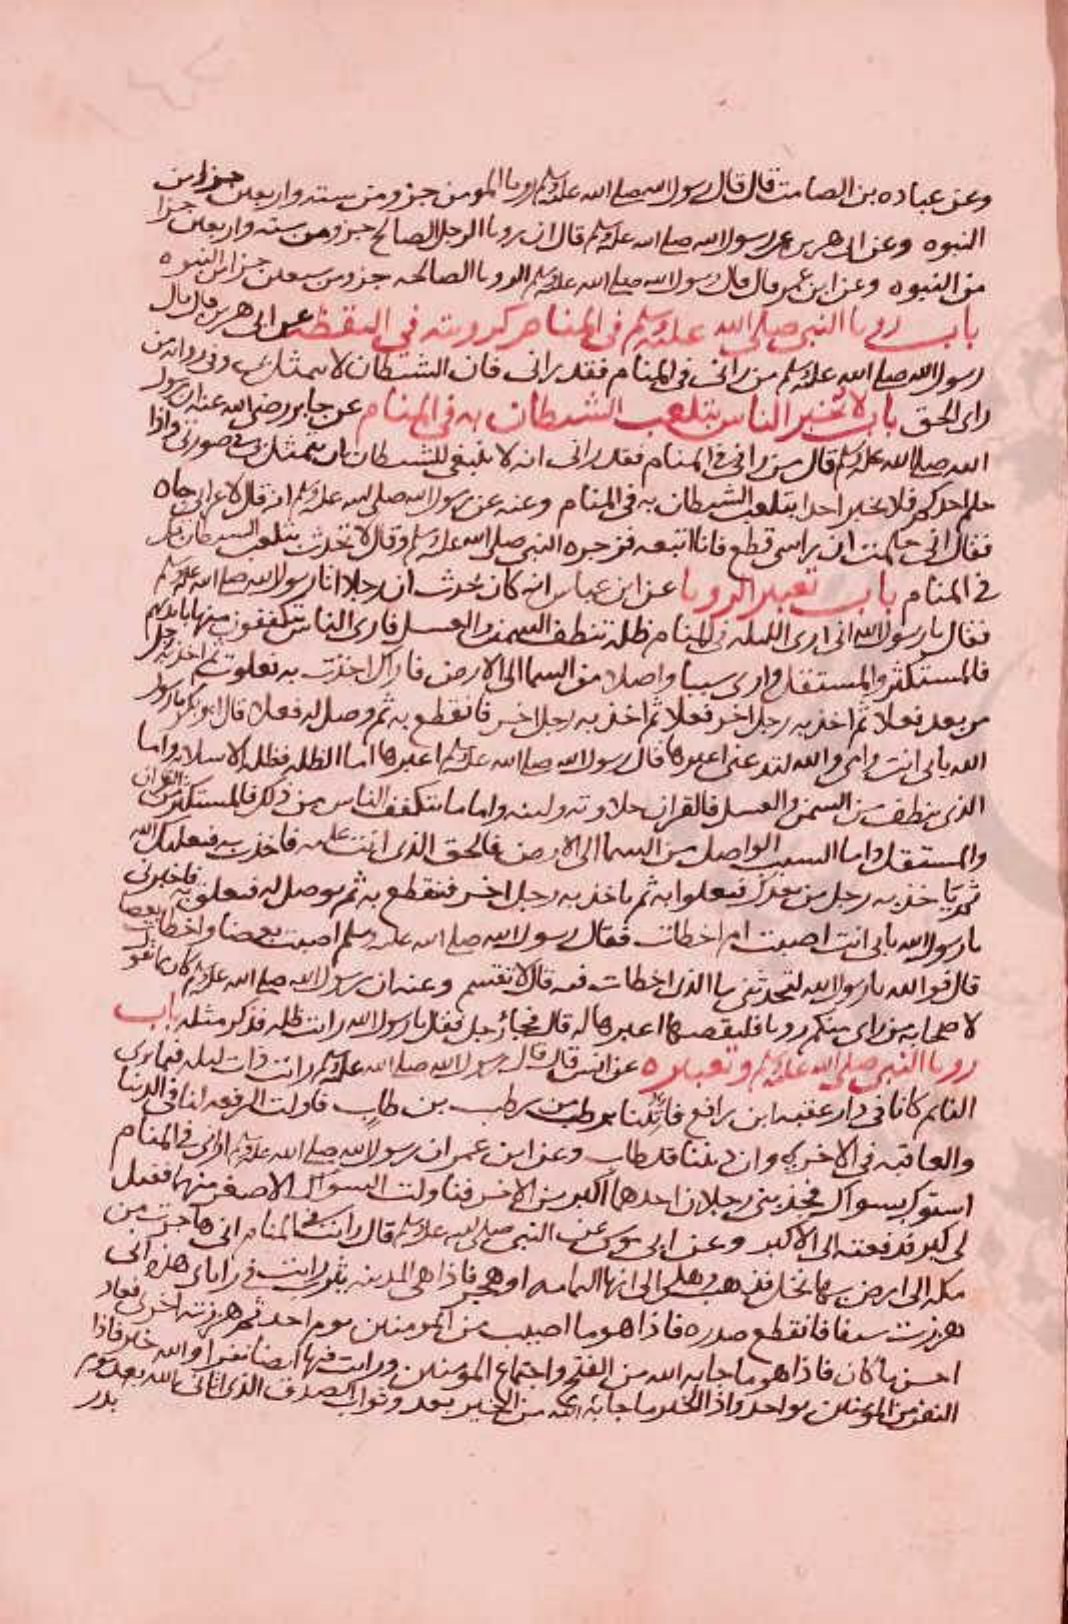 وعن عباده بن الصامت قال قال رسول الله صلى الله عليه وسلم رويا المومن جزو من سته واربعين جزا من
النبوه وعن ابى هريره عن رسول الله صلى الله عليه وسلم قال ان رويا الرجل الصالح جزو من سته واربعين جزا
من النبوه وعن ابن عمر قال قال رسول الله صلى الله عليه وسلم الرويا الصالحه جزو من سبعين جزا من النبوه
باب رويا النبى صلى الله عليه وسلم فى المنام كرويته فى اليقظه عن ابى هريره قال قال
رسول الله صلى الله عليه وسلم من رانى فى المنام فقد رانى فان الشيطان لا يتمثل بى وفى روايه من
راى الحق باب لا يخبر الناس بتلعب الشيطان به فى المنام عن جابر رضى الله عنه ان رسول
الله صلى الله عليه وسلم قال من رانى فى المنام فقد رانى انه لا ينبغى للشيطان ان يتمثل فى صورتى واذا
حلم احدكم فلا يخبر احدا بتلعب الشيطان به فى المنام وعنه عن رسول الله صلى الله عليه وسلم انه قال لاعرابى جاه
فقال انى حلمت ان راسى قطع فانا اتبعه فزجره النبى صلى الله عليه وسلم وقال لا تحدث بتلعب الشيطان بك
فى المنام باب تعبير الرويا عن ابن عباس انه كان يحدث ان رجلا اتا رسول الله صلى الله عليه وسلم
فقال يا رسول الله انى ارى الليله فى المنام ظله تنطف السمن والعسل فارى الناس يتكففون منها بايديهم
فالمستكثر والمستقل وارى سببا واصلا من السما الى الارض فاراك اخذت به فعلوت ثم اخذ به رجل
من بعد فعلا ثم اخذ به رجل اخر فعلا ثم اخذ به رجل اخر فانقطع به ثم وصل له فعلا قال ابو بكر يا رسول
الله بابى انت وامى والله لتدعنى اعبرها قال رسول الله صلى الله عليه وسلم اعبرها اما الظله فظله الاسلام واما
الذى ينطف من السمن والعسل فالقران حلاوته ولينه واما ما يتكفف الناس من ذلك فالمستكثر من القران
والمستقل واما السبب الواصل من السما الى الارض فالحق الذى انت عليه فاخذت به فيعليك الله
ثم ياخذ به رجل من بعدك فيعلوا به ثم ياخذ به رجل اخر فينقطع به ثم يوصل له فيعلوا به فاخبرنى
يا رسول الله بابى انت اصبت ام اخطات فقال رسول الله صلى الله عليه وسلم اصبت بعضا واخطات بعضا
قال فوالله يا رسول الله لتحدثنى ما الذى اخطات فيه قال لا تقسم وعنه ان رسول الله صلى الله عليه وسلم كان مما يقول
لاصحابه من راى منكم رويا فليقصها اعبرها له قال فجاء رجل فقال يا رسول الله رايت ظله فذكر مثله باب
رويا النبى صلى الله عليه وسلم وتعبيره عن انس قال قال رسول الله صلى الله عليه وسلم رايت ذات ليله فيما يرى
النايم كانا فى دار عقبه ابن رافع فاتينا برطب من رطب بن طاب فاولت الرفعه لنا فى الدنيا
والعاقبه فى الاخره وان ديننا قد طاب وعن ابن عمر ان رسول الله صلى الله عليه وسلم ارانى فى المنام
استوك بسواك فجذبنى رجلان احدهما اكبر من الاخر فناولت السواك الاصغر منهما فقيل
لى كبر فدفعته الى الاكبر وعن ابى موسى عن النبى صلى الله عليه وسلم قال رايت فى المنام انى هاجرت من
مكه الى ارض بها نخل فذهب وهلى الى انها اليمامه او هجر فاذا هى المدينه يثرب رايت فى روياى هذه انى
هززت سيفا فانقطع صدره فاذا هو ما اصيب من المومنين يوم احد ثم هززته اخرى فعاد
احسن ما كان فاذا هو ما جا به الله من الفتح واجتماع المومنين ورايت فيها ايضا بقرا والله خير فاذا
النفر من المومنين يوم احد واذا الخير ما جا به الله من الخير بعد وثواب الصدق الذى اتانى الله بعد يوم
بدر